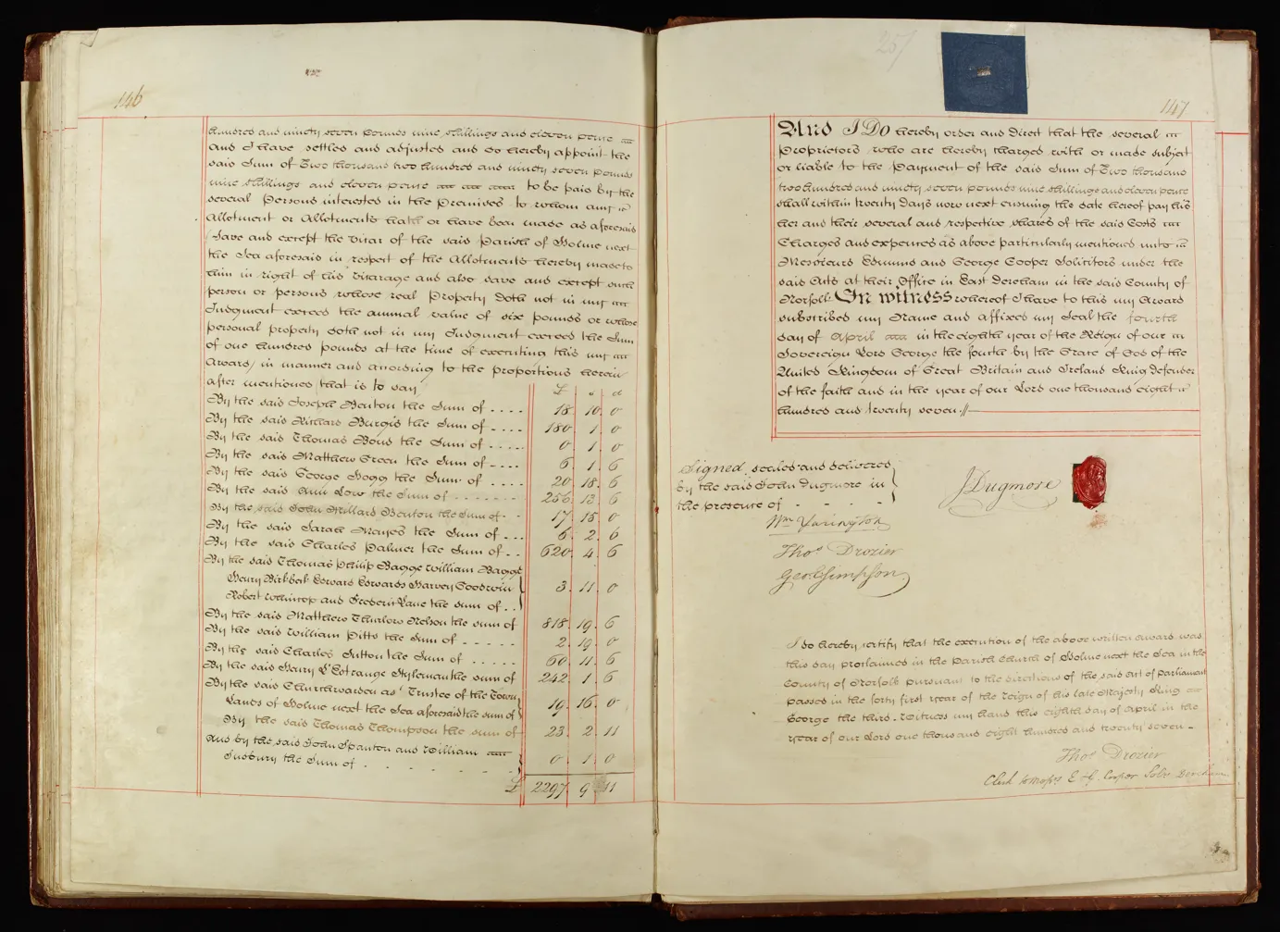 146
hundred and ninety seven pounds nine shillings and eleven pence
and I have settled and adjusted and do hereby appoint the
said Sum of Two thousand two hundred and ninety seven pounds
nine shillings and eleven pence to be paid by the
several Persons interested in the Premises to whom any
Allotment or Allotments hath or have been made as aforesaid
(save and except the Vicar of the said Parish of Holme next
the Sea aforesaid in respect of the Allotments hereby made to
him in right of his Vicarage and also save and except such
person or persons whose real Property doth not in my
Judgment exceed the annual value of six pounds or whose
personal property doth not in my Judgment exceed the Sum
of one hundred pounds at the time of executing this my
Award) in manner and according to the proportions herein
after mentioned that is to say £ s d
By the said Joseph Benton the Sum of .... 18. 10. 0
By the said Richard Burgis the Sum of .... 180. 1. 0
By the said Thomas Bond the Sum of .... 0. 1. 0
By the said Matthew Green the Sum of .... 6. 1. 6
By the said George Hogg the Sum of .... 20. 18. 6
By the said Ann Low the Sum of ....... 256. 13. 6
By the said John Millard Benton the Sum of .. 17. 15. 0
By the said Sarah Mayes the Sum of ... 6. 2. 6
By the said Charles Palmer the Sum of .. 620. 4. 6
By the said Thomas Philip Bagge William Bagge
Henry Birkbeck Edward Edwards Harvey Goodwin
Robert Winthrop and Frederic Lane the sum of .. 3. 11. 0
By the said Matthew Thurlow Nelson the sum of 818. 19. 6
By the said William Pitts the Sum of ..... 2. 19. 0
By the said Charles Sutton the Sum of ..... 60. 11. 6
By the said Henry L'Estrange Styleman the sum of 242. 1. 6
By the said Churchwarden as Trustee of the Town
Lands of Holme next the Sea aforesaid the sum of 19. 16. 0
By the said Thomas Thompson the sum of 23. 2. 11
And by the said John Stanton and William
the Sum of . . . . . . 0. 1. 0
£ 2297. 9. 11
257
147
And I Do hereby order and direct that the several
Proprietors who are hereby charged with or made subject
or liable to the Payment of the said Sum of Two thousand
two hundred and ninety seven pounds nine shillings and eleven pence
shall within twenty Days now next ensuing the date hereof pay his
her and their several and respective shares of the said Costs
Charges and expences as above particularly mentioned unto
Messieurs Edmund and George Cooper Solicitors under the
said Acts at their Office in East Dereham in the said County of
Norfolk In witness whereof I have to this my Award
subscribed my Name and affixed my Seal the fourth
day of April in the eighth year of the Reign of our
Sovereign Lord George the fourth by the Grace of God of the
United Kingdom of Great Britain and Ireland King defender
of the faith and in the year of our Lord one thousand eight
hundred and twenty seven.//
Signed, sealed and delivered
by the said John Dugmore in
the presence of - - -
J Dugmore
Wm Varington
Thos Drozier
Geo. Simpson
I do hereby certify that the execution of the above written award was
this day proclaimed in the Parish Church of Holme next the Sea in the
County of Norfolk pursuant to the directions of the said Act of Parliament
passed in the forty first year of the reign of his late Majesty King
George the third. Witness my hand this eighth day of April in the
year of our Lord one thousand eight hundred and twenty seven -
Thos Drozier
Clerk to Messrs E & G. Cooper Solrs Dereham